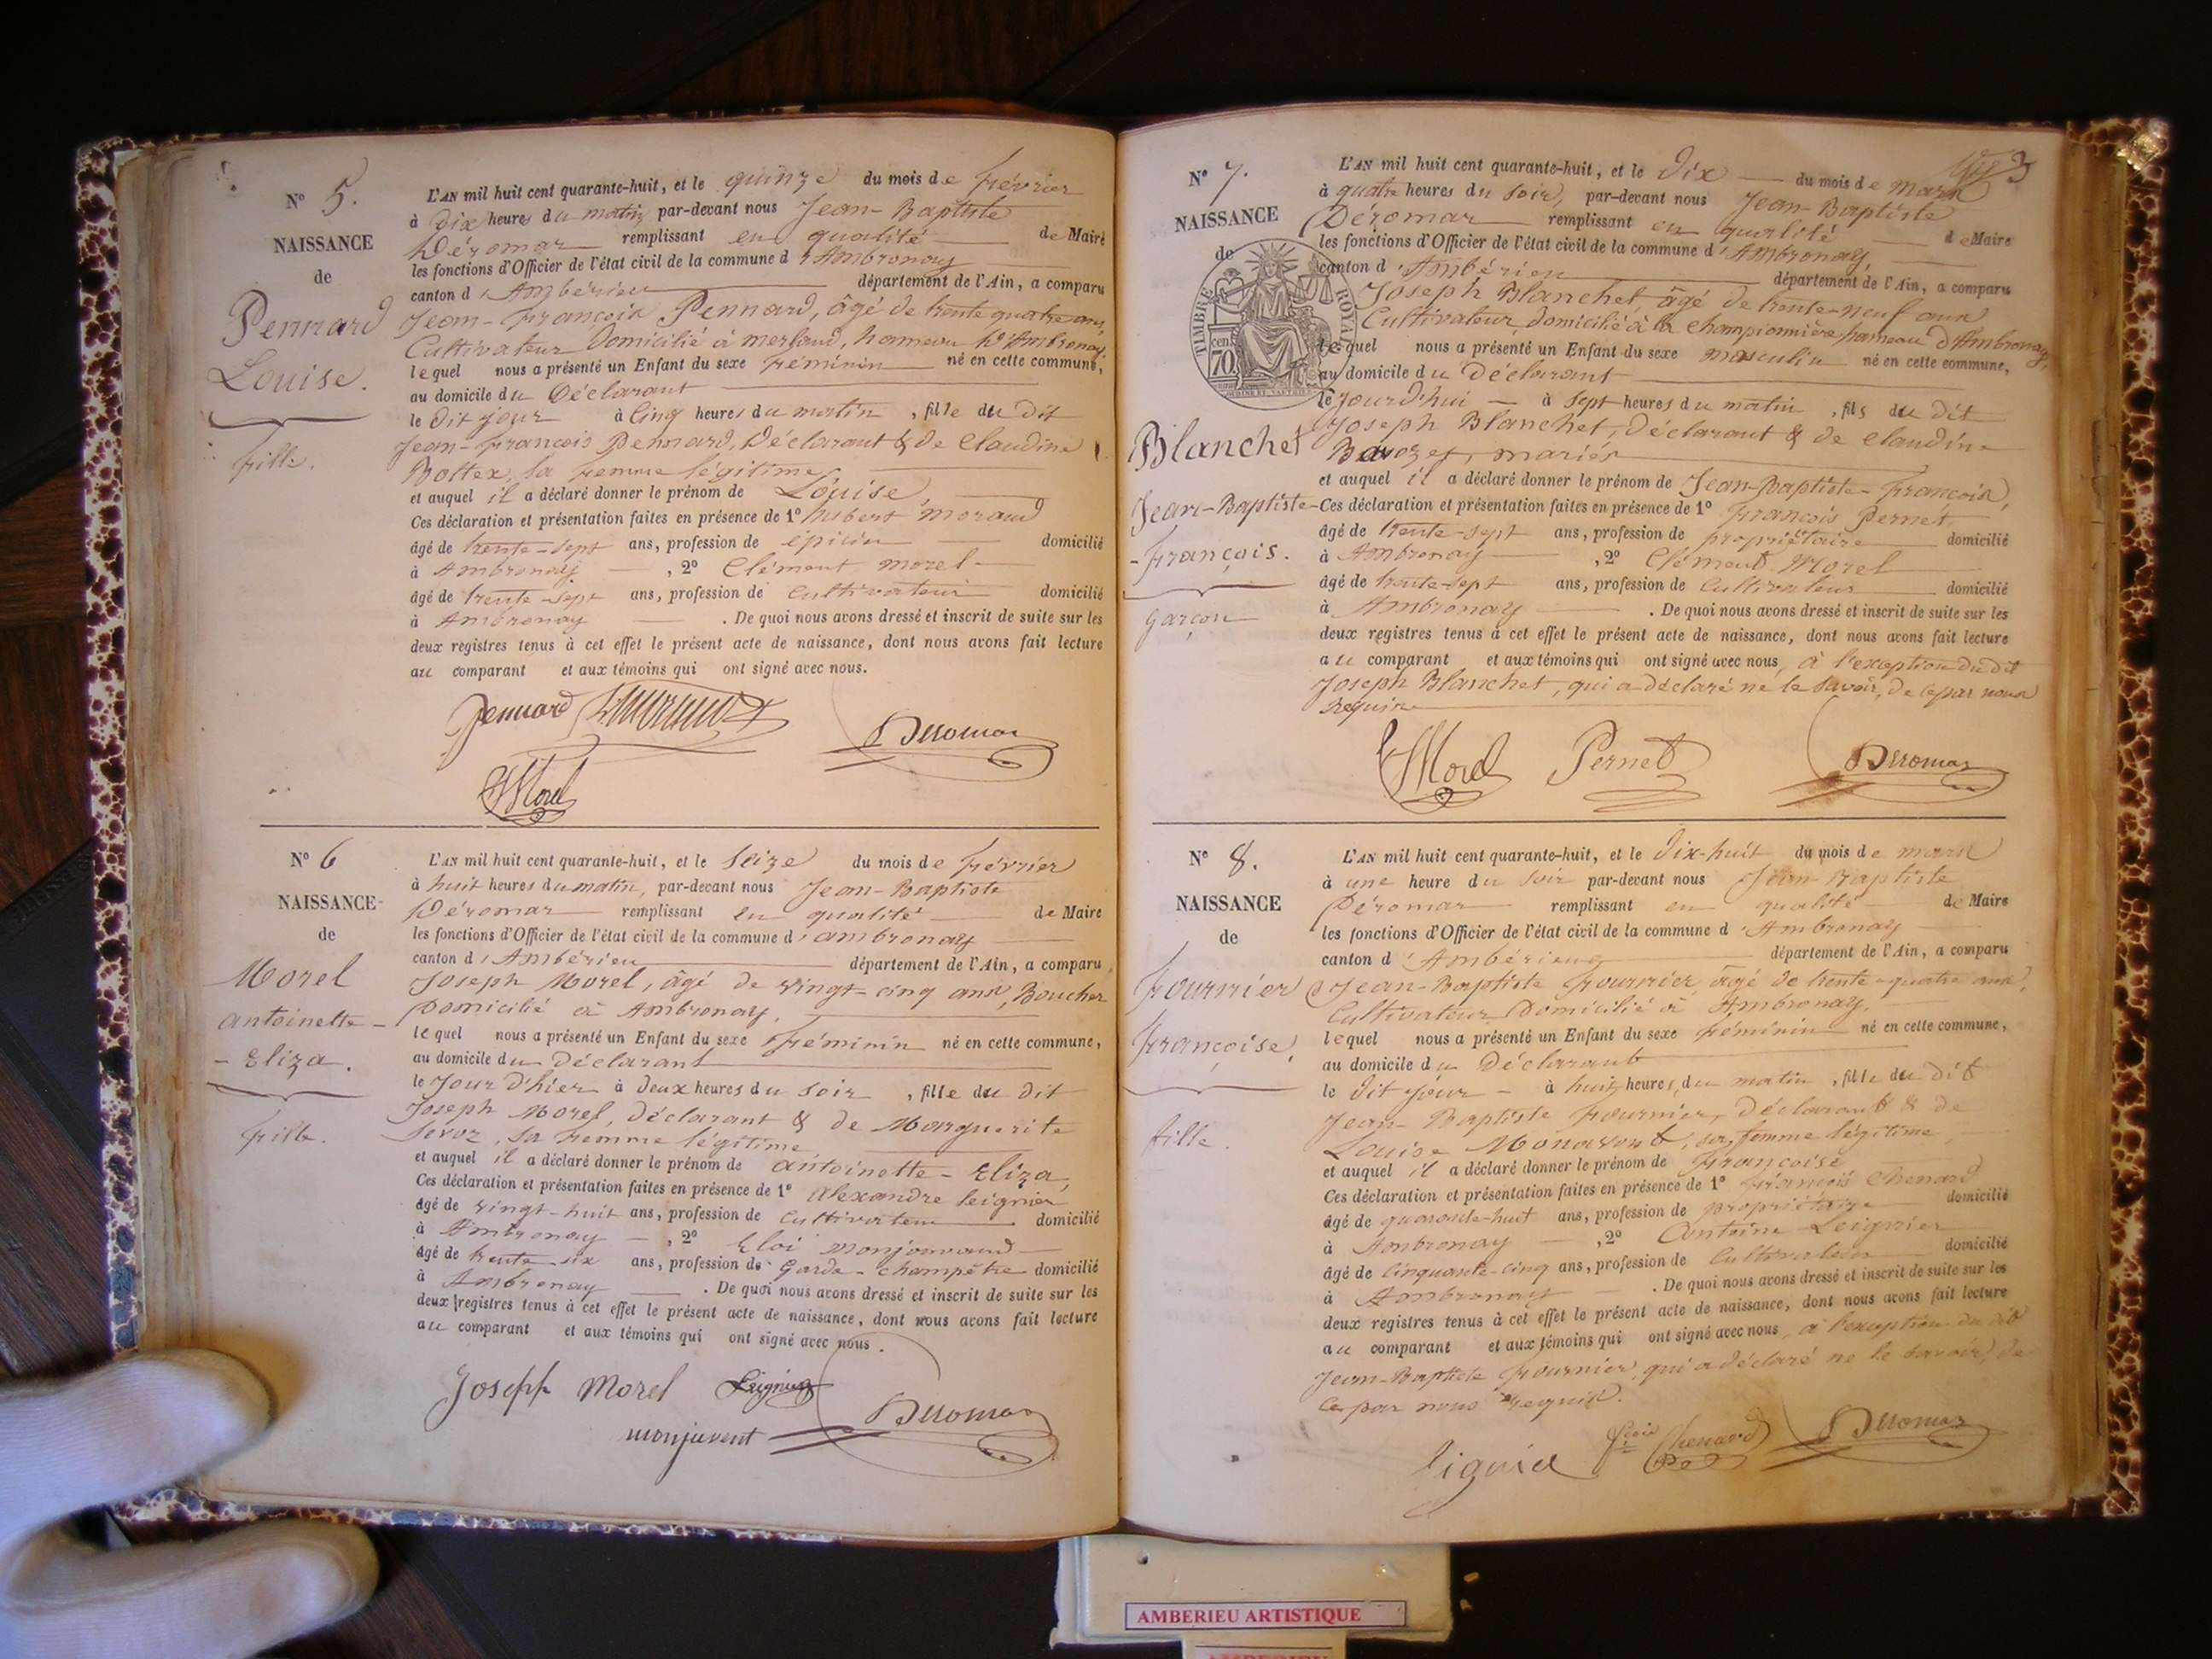 N° 5.
NAISSANCE
de
Pennard
Louise.
fille.
L'AN mil huit cent quarante-huit, et le quinze du mois de février
à dix heures du matin, par-devant nous Jean-Baptiste
Déromar remplissant en qualité de Maire
les fonctions d'Officier de l'état civil de la commune d'Ambronay
canton d'Ambérieu département de l'Ain, a comparu
Jean-François Pennard, âgé de trente quatre ans,
Cultivateur domicilié à merland, hameau d'Ambronay,
lequel nous a présenté un Enfant du sexe féminin né en cette commune,
au domicile du Déclarant
le dit jour à cinq heures du matin, fille du dit
Jean-François Pennard, Déclarant & de Claudine
Bottex, sa femme légitime,
et auquel il a déclaré donner le prénom de Louise,
Ces déclaration et présentation faites en présence de 1° hubert morand
âgé de trente-sept ans, profession de épicier domicilié
à Ambronay, 2° Clément morel
âgé de trente-sept ans, profession de Cultivateur domicilié
à Ambronay. De quoi nous avons dressé et inscrit de suite sur les
deux registres tenus à cet effet le présent acte de naissance, dont nous avons fait lecture
au comparant et aux témoins qui ont signé avec nous.
Pennard Deromar
Morel
N° 6
NAISSANCE
de
Morel
antoinette-
-Eliza.
fille.
L'AN mil huit cent quarante-huit, et le Seize du mois de février
à huit heures du matin, par-devant nous Jean-Baptiste
Déromar remplissant en qualité de Maire
les fonctions d'Officier de l'état civil de la commune d'ambronay
canton d'Ambérieu département de l'Ain, a comparu
Joseph Morel, âgé de vingt-cinq ans, Boucher
Domicilié à Ambronay,
lequel nous a présenté un Enfant du sexe féminin né en cette commune,
au domicile du Déclarant
le Jour d'hier à deux heures du soir, fille du dit
Joseph Morel, déclarant & de Marguerite
Sevoz, sa femme légitime
et auquel il a déclaré donner le prénom de antoinette-Eliza,
Ces déclaration et présentation faites en présence de 1° alexandre leignier
âgé de vingt-huit ans, profession de Cultivateur domicilié
à Ambronay, 2° Eloi monjouvand
âgé de trente six ans, profession de Garde-champêtre domicilié
à Ambronay. De quoi nous avons dressé et inscrit de suite sur les
deux registres tenus à cet effet le présent acte de naissance, dont nous avons fait lecture
au comparant et aux témoins qui ont signé avec nous.
Joseph Morel Leignier
monjuvent Deromar
3
N° 7.
NAISSANCE
de
TIMBRE ROYAL
70 cen.
Blanchet
Jean-Baptiste-
-François.
garçon
L'AN mil huit cent quarante-huit, et le Dix du mois de mars
à quatre heures du soir, par-devant nous Jean-Baptiste
Déromar remplissant en qualité de Maire
les fonctions d'Officier de l'état civil de la commune d'Ambronay,
canton d'Ambérieu département de l'Ain, a comparu
Joseph Blanchet, âgé de trente-neuf ans
Cultivateur, domicilié à la Championnière, hameau d'Ambronay,
lequel nous a présenté un Enfant du sexe masculin né en cette commune,
au domicile du Déclarant
le jourd'hui à sept heures du matin, fils du dit
Joseph Blanchet, déclarant & de Claudine
Bavozet, mariés
et auquel il a déclaré donner le prénom de Jean-Baptiste-François,
Ces déclaration et présentation faites en présence de 1° François Pernet,
âgé de trente-sept ans, profession de propriétaire domicilié
à Ambronay, 2° Clément Morel
âgé de trente-sept ans, profession de Cultivateur domicilié
à Ambronay. De quoi nous avons dressé et inscrit de suite sur les
deux registres tenus à cet effet le présent acte de naissance, dont nous avons fait lecture
au comparant et aux témoins qui ont signé avec nous, à l'exception du dit
Joseph Blanchet, qui a déclaré ne le savoir, de ce par nous
requis
Morel Pernet Deromar
N° 8.
NAISSANCE
de
Fournier
Françoise,
fille.
L'AN mil huit cent quarante-huit, et le Dix-huit du mois de mars
à une heure du soir par-devant nous Jean-Baptiste
Déromar remplissant en qualité de Maire
les fonctions d'Officier de l'état civil de la commune d'Ambronay
canton d'Ambérieu département de l'Ain, a comparu
Jean-Baptiste Fournier, âgé de trente-quatre ans,
Cultivateur, Domicilié à Ambronay,
lequel nous a présenté un Enfant du sexe féminin né en cette commune,
au domicile du Déclarant
le dit jour à huit heures du matin, fille du dit
Jean-Baptiste Fournier, déclarant & de
Louise Monavont, sa femme légitime,
et auquel il a déclaré donner le prénom de Françoise
Ces déclaration et présentation faites en présence de 1° François Chenard
âgé de quarante-huit ans, profession de propriétaire domicilié
à Ambronay, 2° Antoine Leignier
âgé de cinquante-cinq ans, profession de Cultivateur domicilié
à Ambronay. De quoi nous avons dressé et inscrit de suite sur les
deux registres tenus à cet effet le présent acte de naissance, dont nous avons fait lecture
au comparant et aux témoins qui ont signé avec nous, à l'exception du dit
Jean-Baptiste Fournier, qui a déclaré ne le savoir, de
ce par nous requis.
Chenard Deromar
AMBERIEU ARTISTIQUE